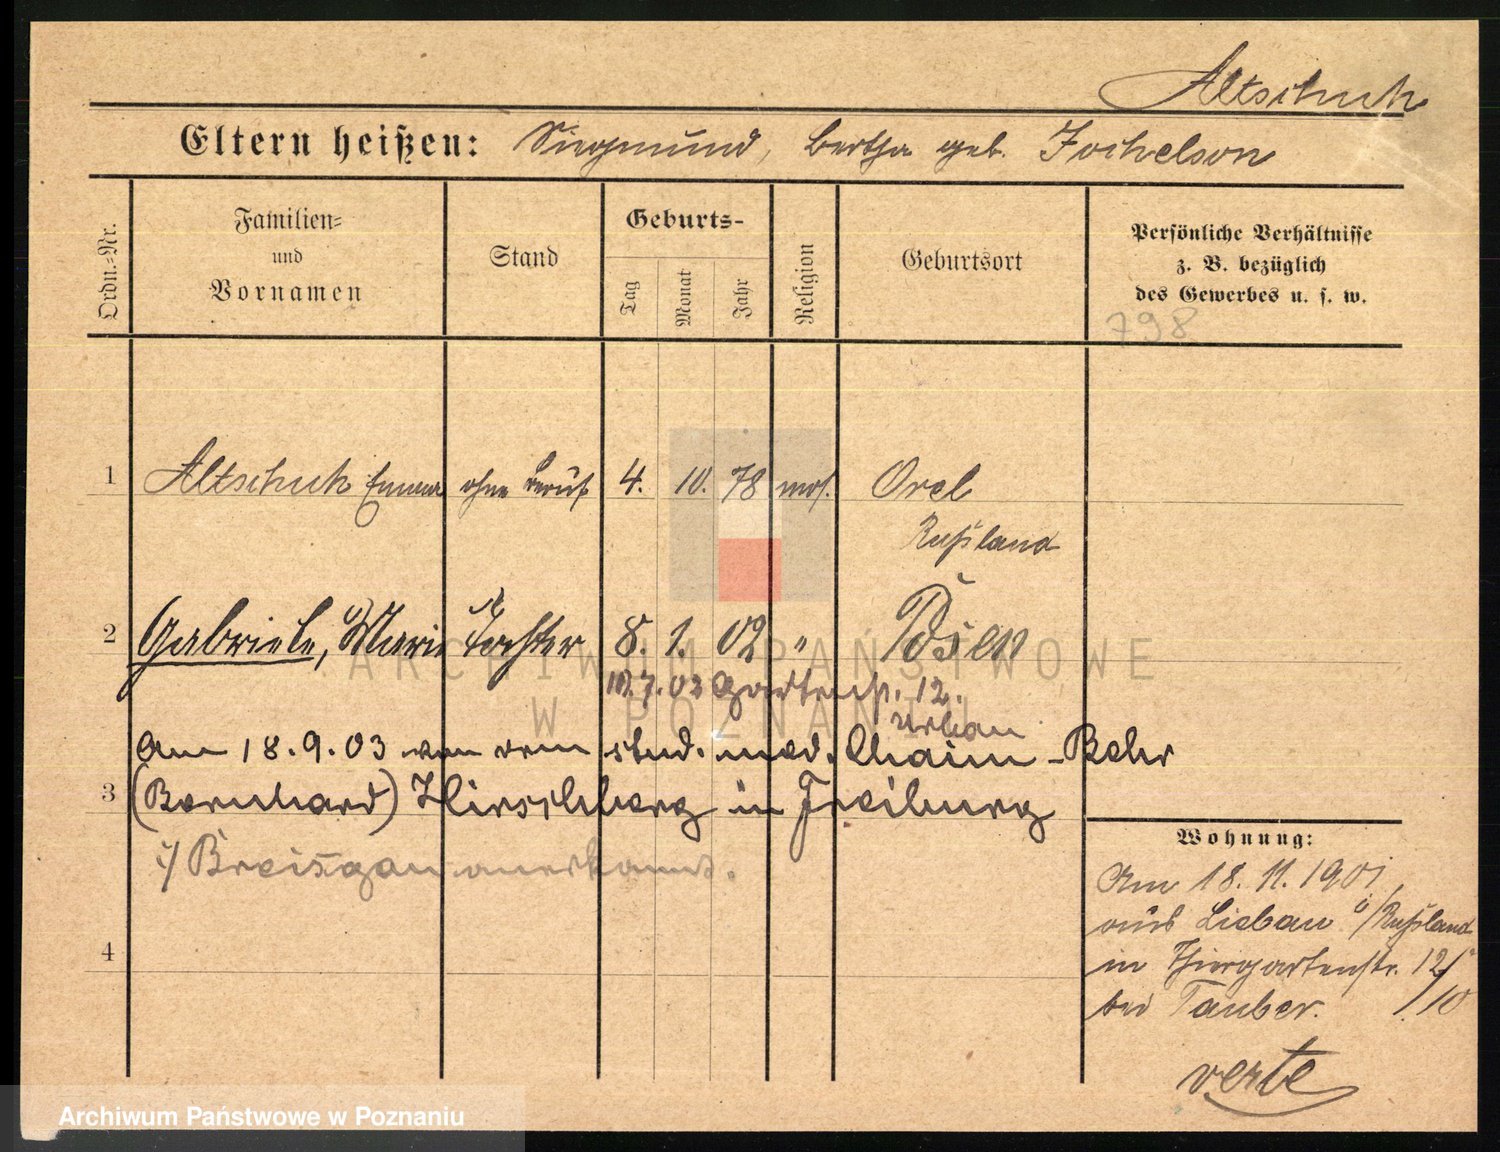 Altschuh
Eltern heißen: Siegmund, Bertha geb. Jochelson
Ordn.-Nr.
Familien- und Vornamen
Stand
Geburts-
Tag
Monat
Jahr
Religion
Geburtsort
Persönliche Verhältnisse
z. B. bezüglich
des Gewerbes u. s. w.
798
1 Altschuh Emma ohne Beruf 4. 10. 78 mos. Orel
Rußland
2 Gabriele, Marie Tochter 8. 1. 02 " Posen
ARCHIWUM PAŃSTWOWE
W POZNANIU
7. 02 12.
Urban
Am 18.9.03 von dem stud. med. Chaim-Behr
3 (Bernhard) Hirschberg in Freiburg
i/ Breisgau anerkannt.
4
Wohnung:
Am 18. 11. 1901,
aus Liebau i/Rußland
in Thiergartenstr. 12/
bei Tauber. /10
verte
Archiwum Państwowe w Poznaniu